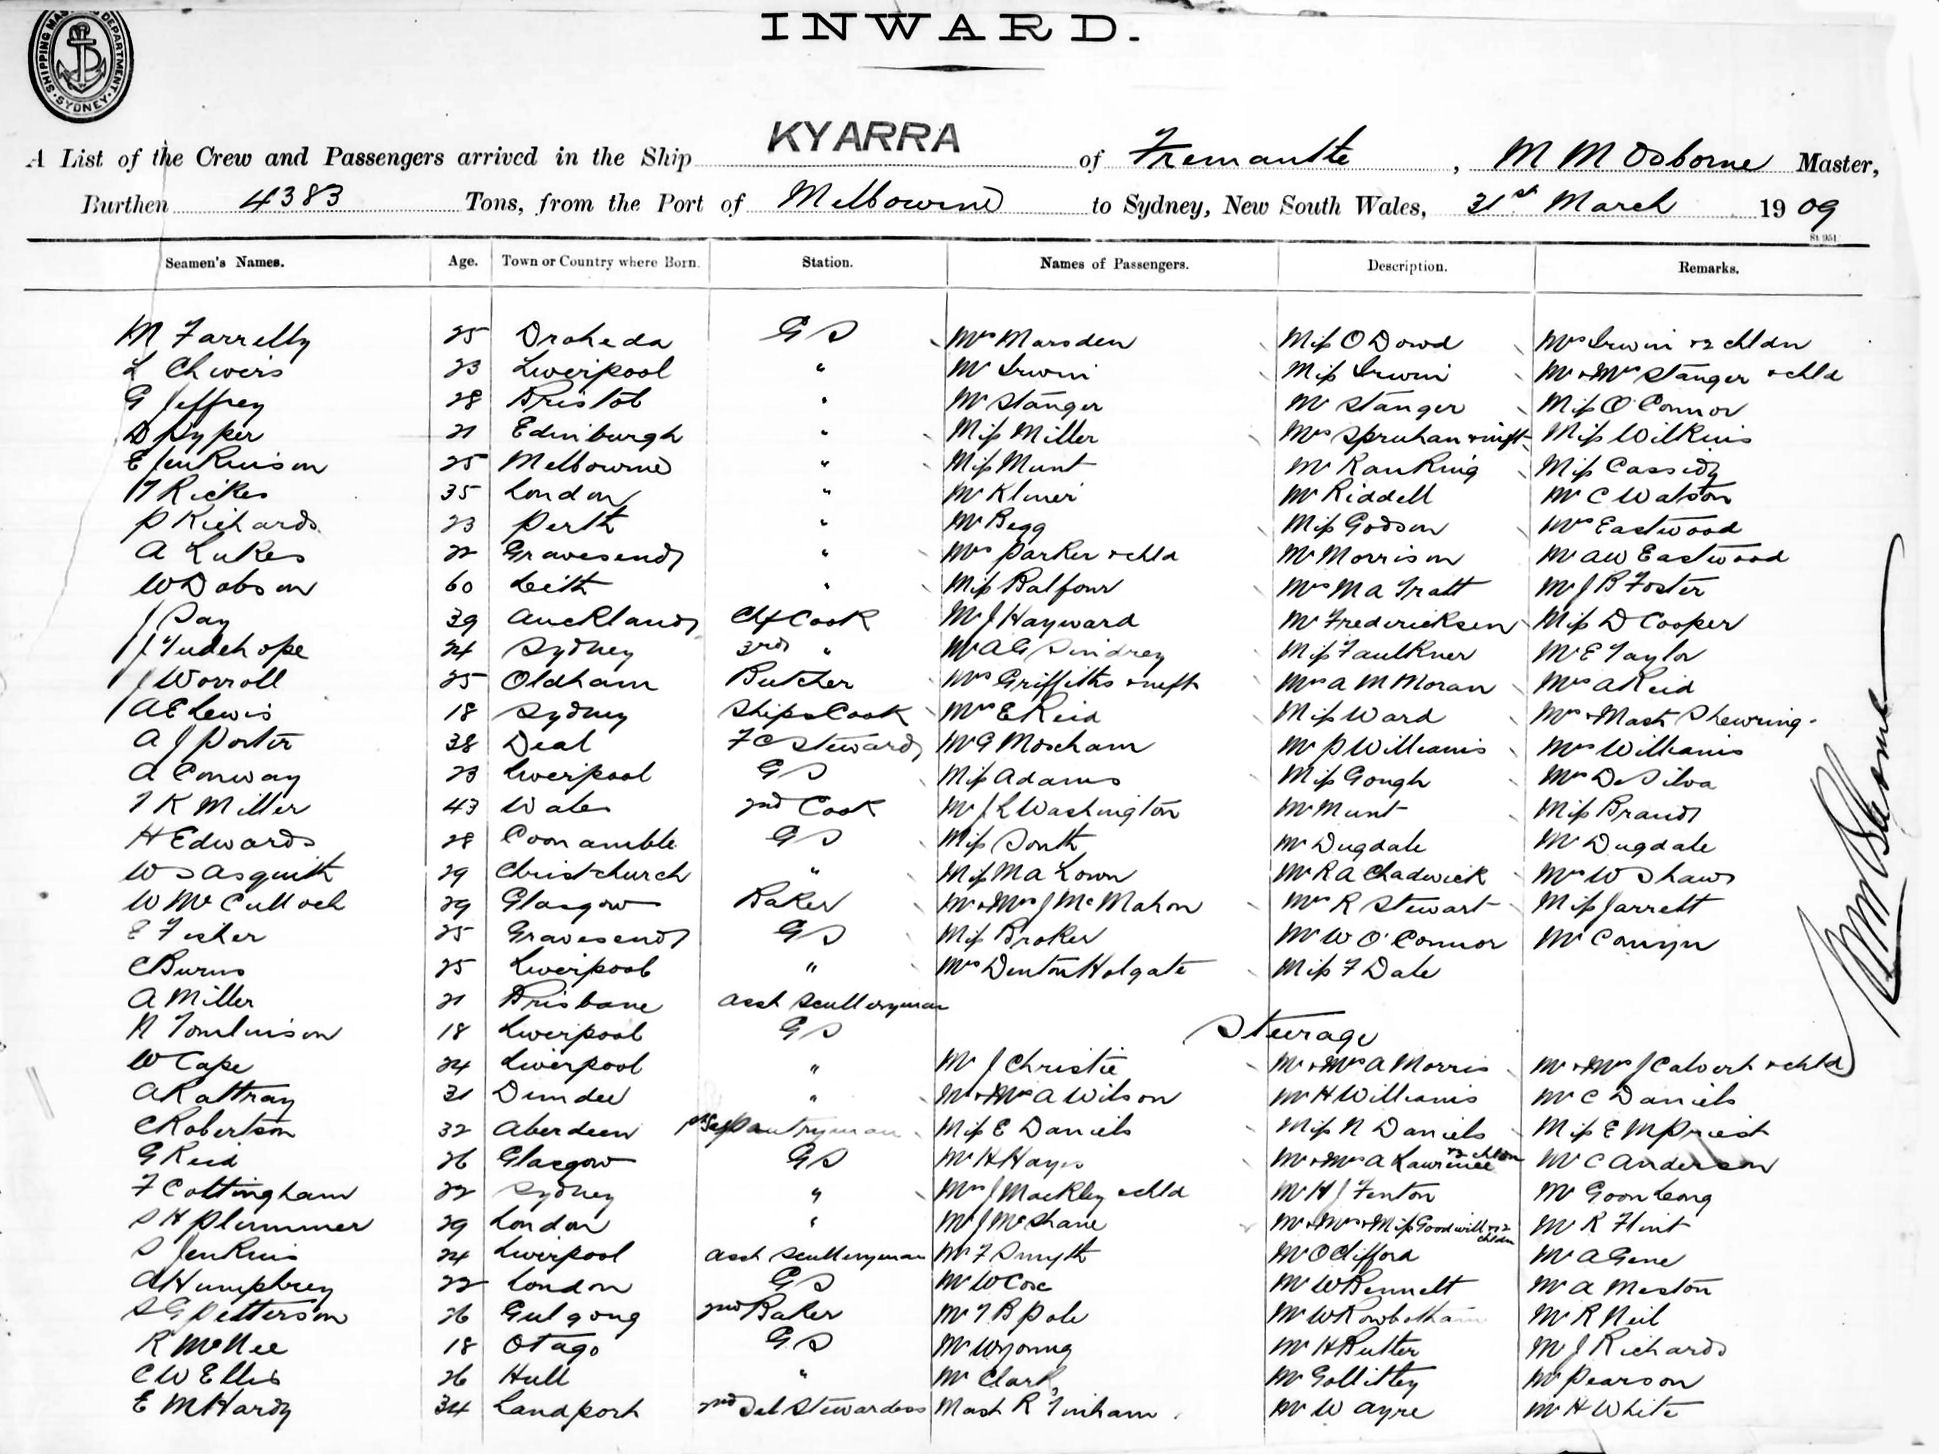 SHIPPING MASTERS DEPARTMENT. SYDNEY
INWARD.
A List of the Crew and Passengers arrived in the Ship KYARRA of Fremantle, M M Osborne Master,
Burthen 4383 Tons, from the Port of Melbourne to Sydney, New South Wales, 31st March 1909
St 951
Seamen's Names. Age. Town or Country where Born. Station. Names of Passengers. Description. Remarks.
M Farrelly 25 Droheda G S Mrs Marsden Miss O Dowd Mrs Irwin + 2 chldn
L Chivers 23 Liverpool " Mr Irwin Miss Irwin Mr + Mrs Stanger + chld
G Jeffrey 28 Bristol " Mr Stanger Mr Stanger Miss O'Connor
D Pyper 21 Edinburgh " Miss Miller Mrs Spruhan + inft Miss Wilkins
E Jenkinson 25 Melbourne " Miss Munt Mr Ranking Miss Cassidy
Rickes 35 London " Mr Klineri Mr Riddell Mr C Watson
P Richards 23 Perth " Mr Begg Miss Godson Mrs Eastwood
A Lukes 22 Gravesend " Mrs Parker + chld Mr Morrison Mr A W Eastwood
W Dobson 60 Leith " Miss Balfour Mrs M A Tratt Mr J B Foster
J Day 39 Auckland Chf Cook Mr J Hayward Mr Fredericksen Miss D Cooper
J Tudehope 24 Sydney 3rd " Mr A G Sindrey Miss Faulkner Mr E Taylor
J Worroll 25 Oldham Butcher Mrs Griffiths + inft Mrs A M Moran Mrs A Reid
A E Lewis 18 Sydney Ships Cook Mrs E Reid Miss Ward Mrs + Mast Shewring
A J Porter 38 Deal F C Steward Mr G Moscham Mr P Williams Mrs Williams
A Conway 23 Liverpool G S Miss Adams Miss Gough Mrs De Silva
T K Miller 43 Wales 2nd Cook Mr J L Washington Mr Munt Miss Brand
H Edwards 28 Coonamble G S Miss South Mr Dugdale Mr Dugdale
W S Asquith 29 Christchurch " Miss M A Lown Mr R A Chadwick Mrs W Shaw
W McCulloch 29 Glasgow Baker Mr + Mrs J McMahon Mrs R Stewart Miss Jarrett
E Fisher 25 Gravesend G S Miss Broker Mr W O'Connor Mr Comyn
C Burns 25 Liverpool " Mrs Denton Holgate Miss F Dale
A Miller 21 Brisbane Asst Sculleryman
N Tomlinson 18 Liverpool G S Steerage
W Cape 24 Liverpool " Mr J Christie Mr + Mrs A Morris Mr + Mrs J Calvert + chld
A Rattray 31 Dundee " Mr + Mrs A Wilson Mr H Williams Mr C Daniels
C Robertson 32 Aberdeen Pantryman Miss E Daniels Miss N Daniels Miss E M Priest
G Reid 26 Glasgow G S Mr H Hayes Mr + Mrs A Lawrence + 2 chldn Mr C Anderson
F Cottingham 22 Sydney " Mrs J Mackley + chld Mr H J Fenton Mr Goon Leong
S H Plummer 29 London " Mr J McShane Mr + Mrs + Miss Goodwill + 2 chldn Mr R Flint
S Jenkins 24 Liverpool Asst Sculleryman Mr F Smyth Mr O Clifford Mr A Gene
A Humphrey 22 London G S Mr W Cox Mr W Bennett Mr A Meston
S G Petterson 26 Gulgong 2nd Baker Mr T B Pole Mr W Rowbotham Mr R Neil
R McNee 18 Otago G S Mr W Young Mr H Rutter Mr J Richards
C W Ellis 26 Hull " Mr Clark Mr Gollitley Mr Pearson
E M Hardy 34 Landport 2nd Sal Stewardess Mast R Tinham Mr W Ayre Mr H White
M M Osborne